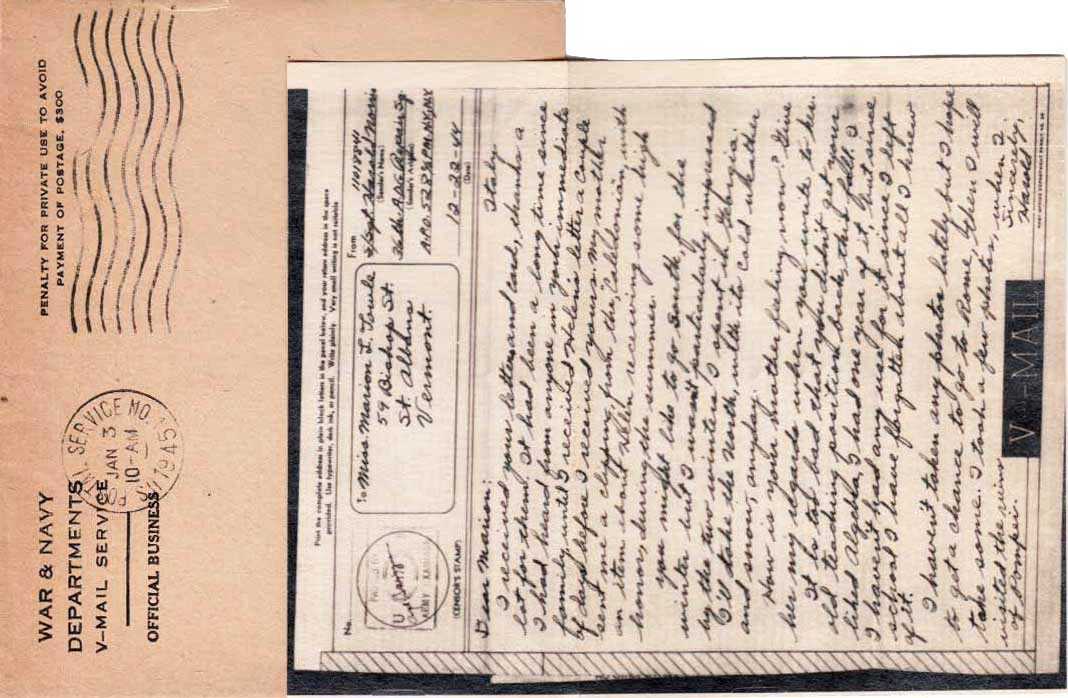 WAR & NAVY
DEPARTMENTS
V-MAIL SERVICE
OFFICIAL BUSINESS
PENALTY FOR PRIVATE USE TO AVOID
PAYMENT OF POSTAGE, $300
POSTAL SERVICE NO.
JAN 3
10-AM
1945
Print the complete address in plain block letters in the panel below, and your return address in the space
provided. Use typewriter, dark ink, or pencil. Write plainly. Very small writing is not suitable
No.
(CENSOR'S STAMP)
To Miss Marion L. Towle
59 Bishop St.
St. Albans
Vermont
From
(Sender's name)
(Sender's address)
12-22-44
(Date)
Italy
Dear Marion:
I received your letter and card, thanks a
lot for them. It had been a long time since
I had heard from anyone in your immediate
family until I received Helen's letter a couple
of days before I received yours. My mother
sent me a clipping from the "Caledonian" with
an item about Helen receiving some high
honors during the summer.
You might like to go South for the
winter but I wasn't particularly impressed
by the two winters I spent in Georgia.
I'll take the North, with its cold weather
and snow, anyday.
How is your mother feeling now? Give
her my regards when you write to her.
It is to bad that you didn't get your
old teaching position back this fall. I
liked Algebra, I had one year of it, but since
I haven't had any use for it since I left
school I have forgotten about all I knew
of it.
I haven't taken any photos lately but I hope
to get a chance to go to Rome, then I will
take some. I took a few photos, when I
visited the ruins
of Pompeii.
Sincerely,
Harold
V-MAIL